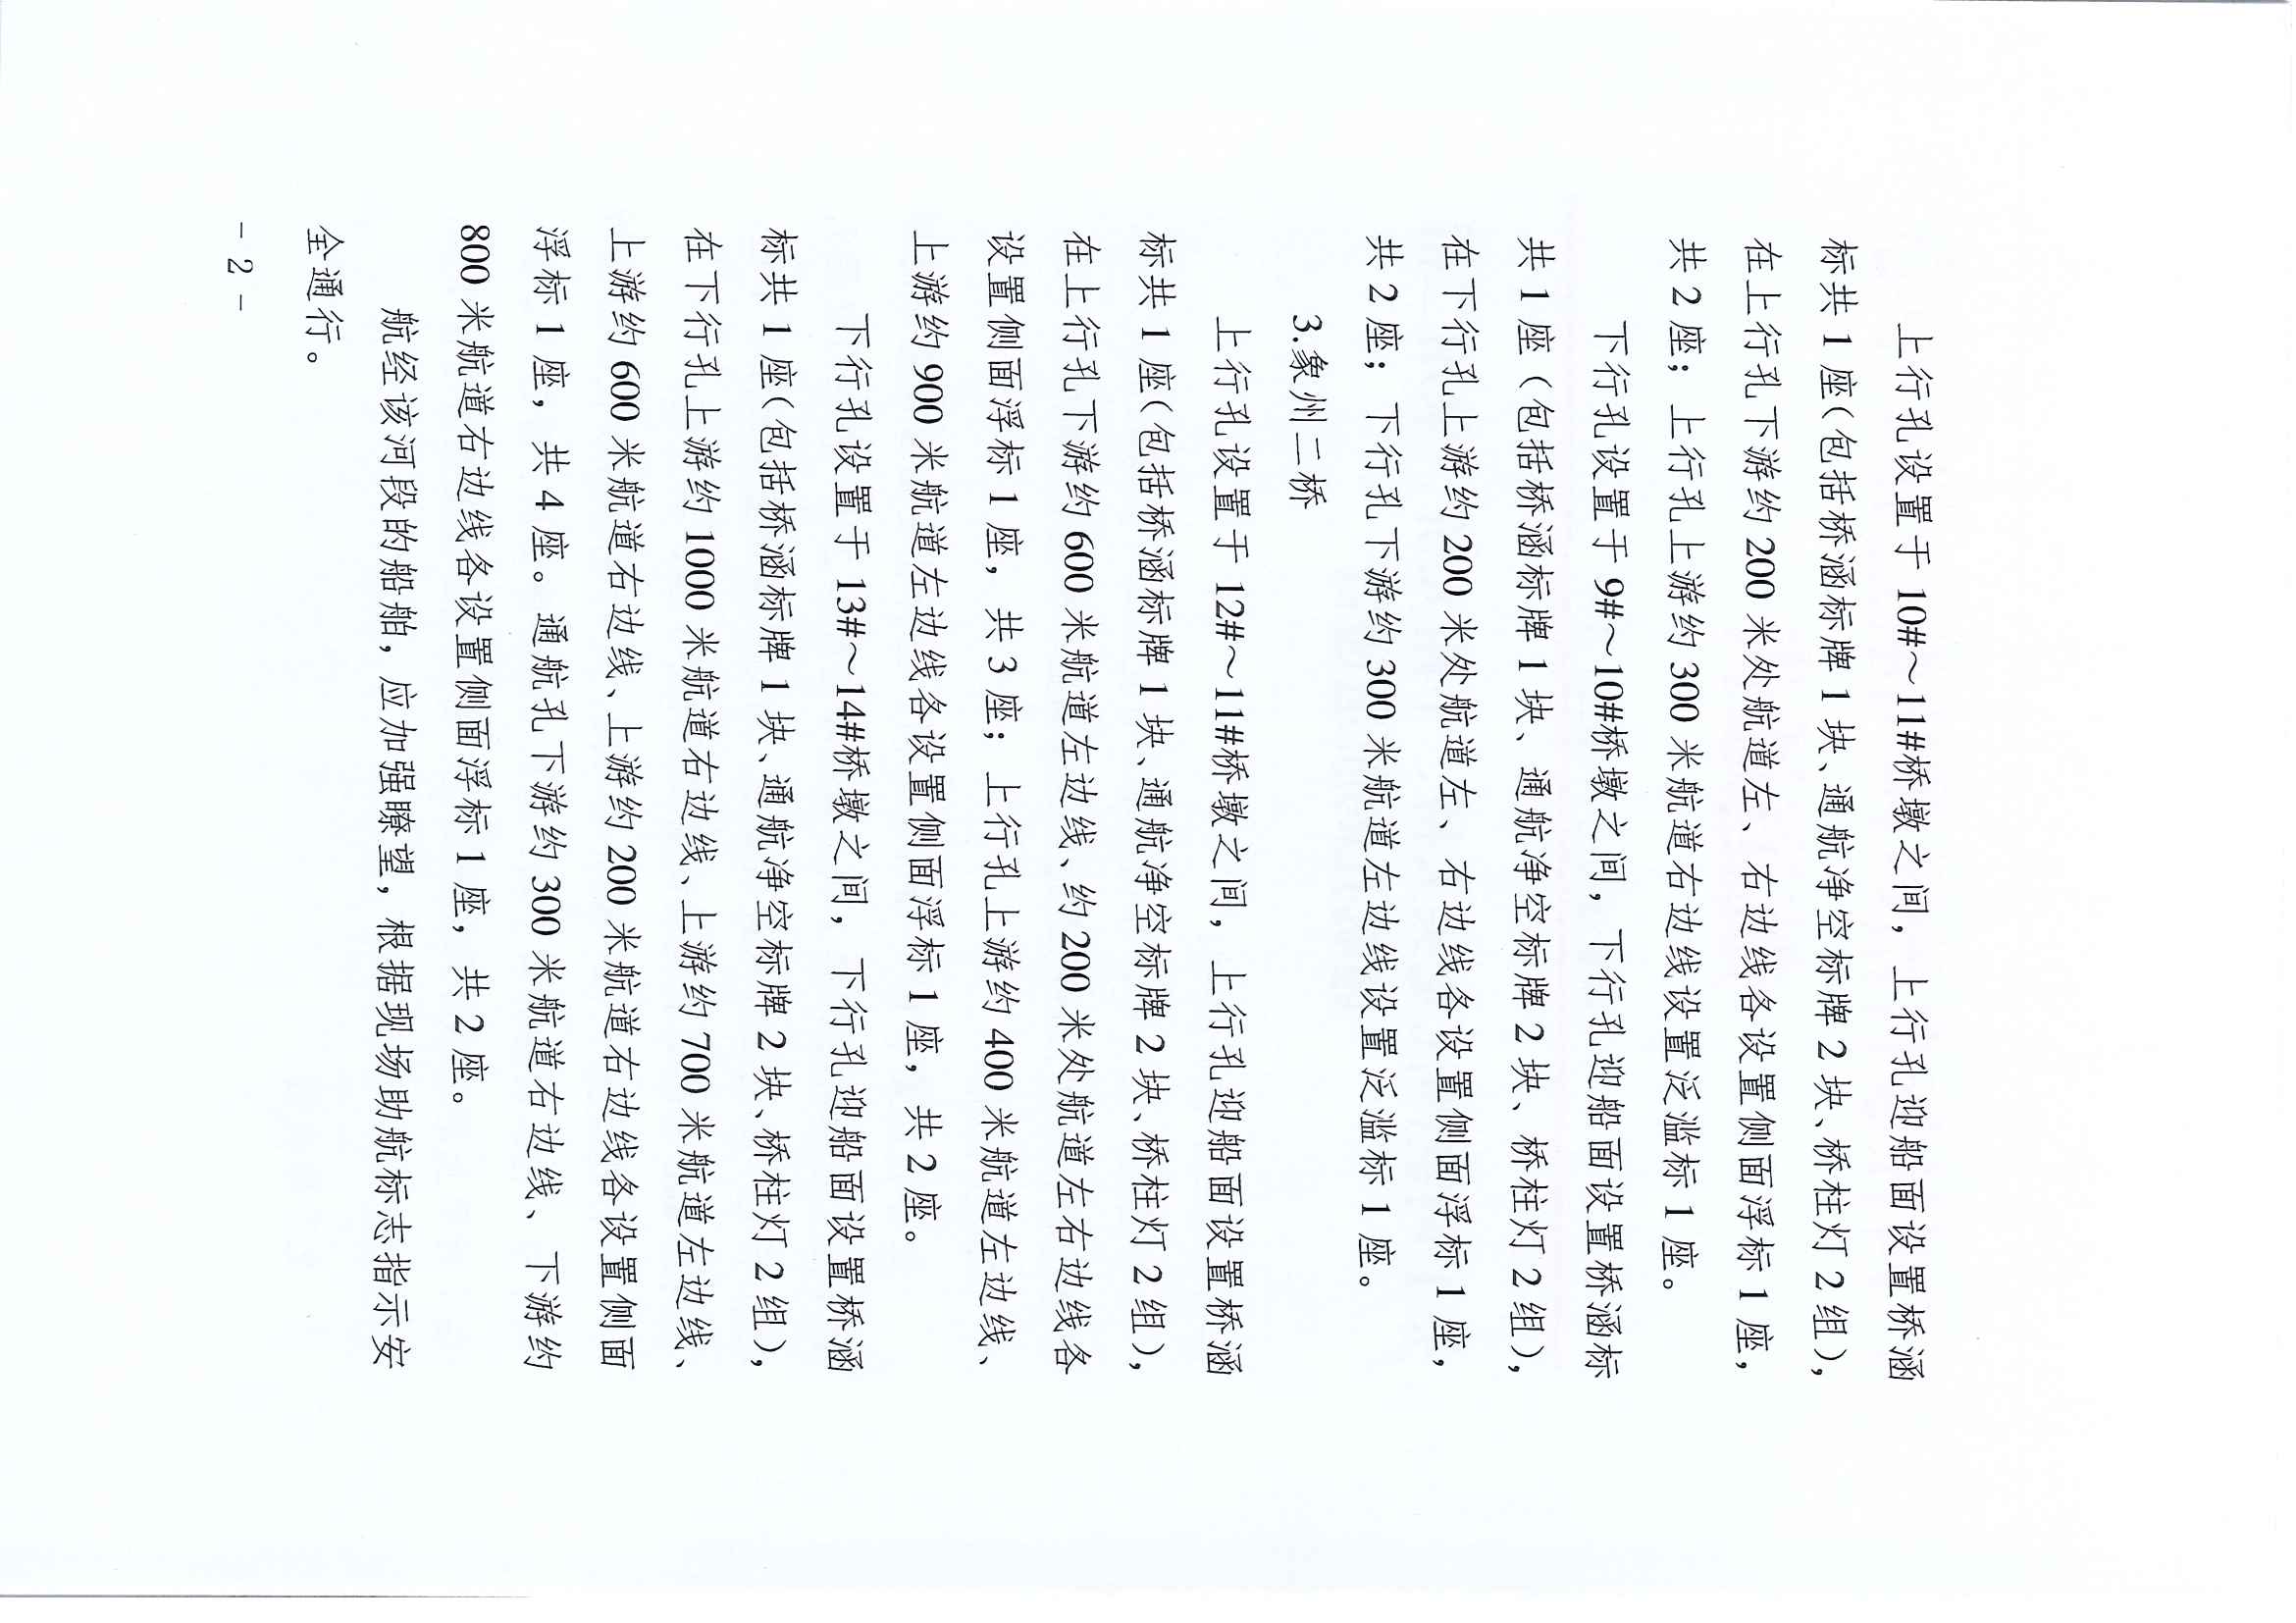 上行孔设置于 10#～11#桥墩之间，上行孔迎船面设置桥涵
标共 1 座（包括桥涵标牌 1 块、通航净空标牌 2 块、桥柱灯 2 组），
在上行孔下游约 200 米处航道左、右边线各设置侧面浮标 1 座，
共 2 座；上行孔上游约 300 米航道右边线设置泛滥标 1 座。
下行孔设置于 9#～10#桥墩之间，下行孔迎船面设置桥涵标
共 1 座（包括桥涵标牌 1 块、通航净空标牌 2 块、桥柱灯 2 组），
在下行孔上游约 200 米处航道左、右边线各设置侧面浮标 1 座，
共 2 座；下行孔下游约 300 米航道左边线设置泛滥标 1 座。
3.象州二桥
上行孔设置于 12#～11#桥墩之间，上行孔迎船面设置桥涵
标共 1 座（包括桥涵标牌 1 块、通航净空标牌 2 块、桥柱灯 2 组），
在上行孔下游约 600 米航道左边线、约 200 米处航道左右边线各
设置侧面浮标 1 座，共 3 座；上行孔上游约 400 米航道左边线、
上游约 900 米航道左边线各设置侧面浮标 1 座，共 2 座。
下行孔设置于 13#～14#桥墩之间，下行孔迎船面设置桥涵
标共 1 座（包括桥涵标牌 1 块、通航净空标牌 2 块、桥柱灯 2 组），
在下行孔上游约 1000 米航道右边线、上游约 700 米航道左边线、
上游约 600 米航道右边线、上游约 200 米航道右边线各设置侧面
浮标 1 座，共 4 座。通航孔下游约 300 米航道右边线、下游约
800 米航道右边线各设置侧面浮标 1 座，共 2 座。
航经该河段的船舶，应加强瞭望，根据现场助航标志指示安
全通行。
- 2 -